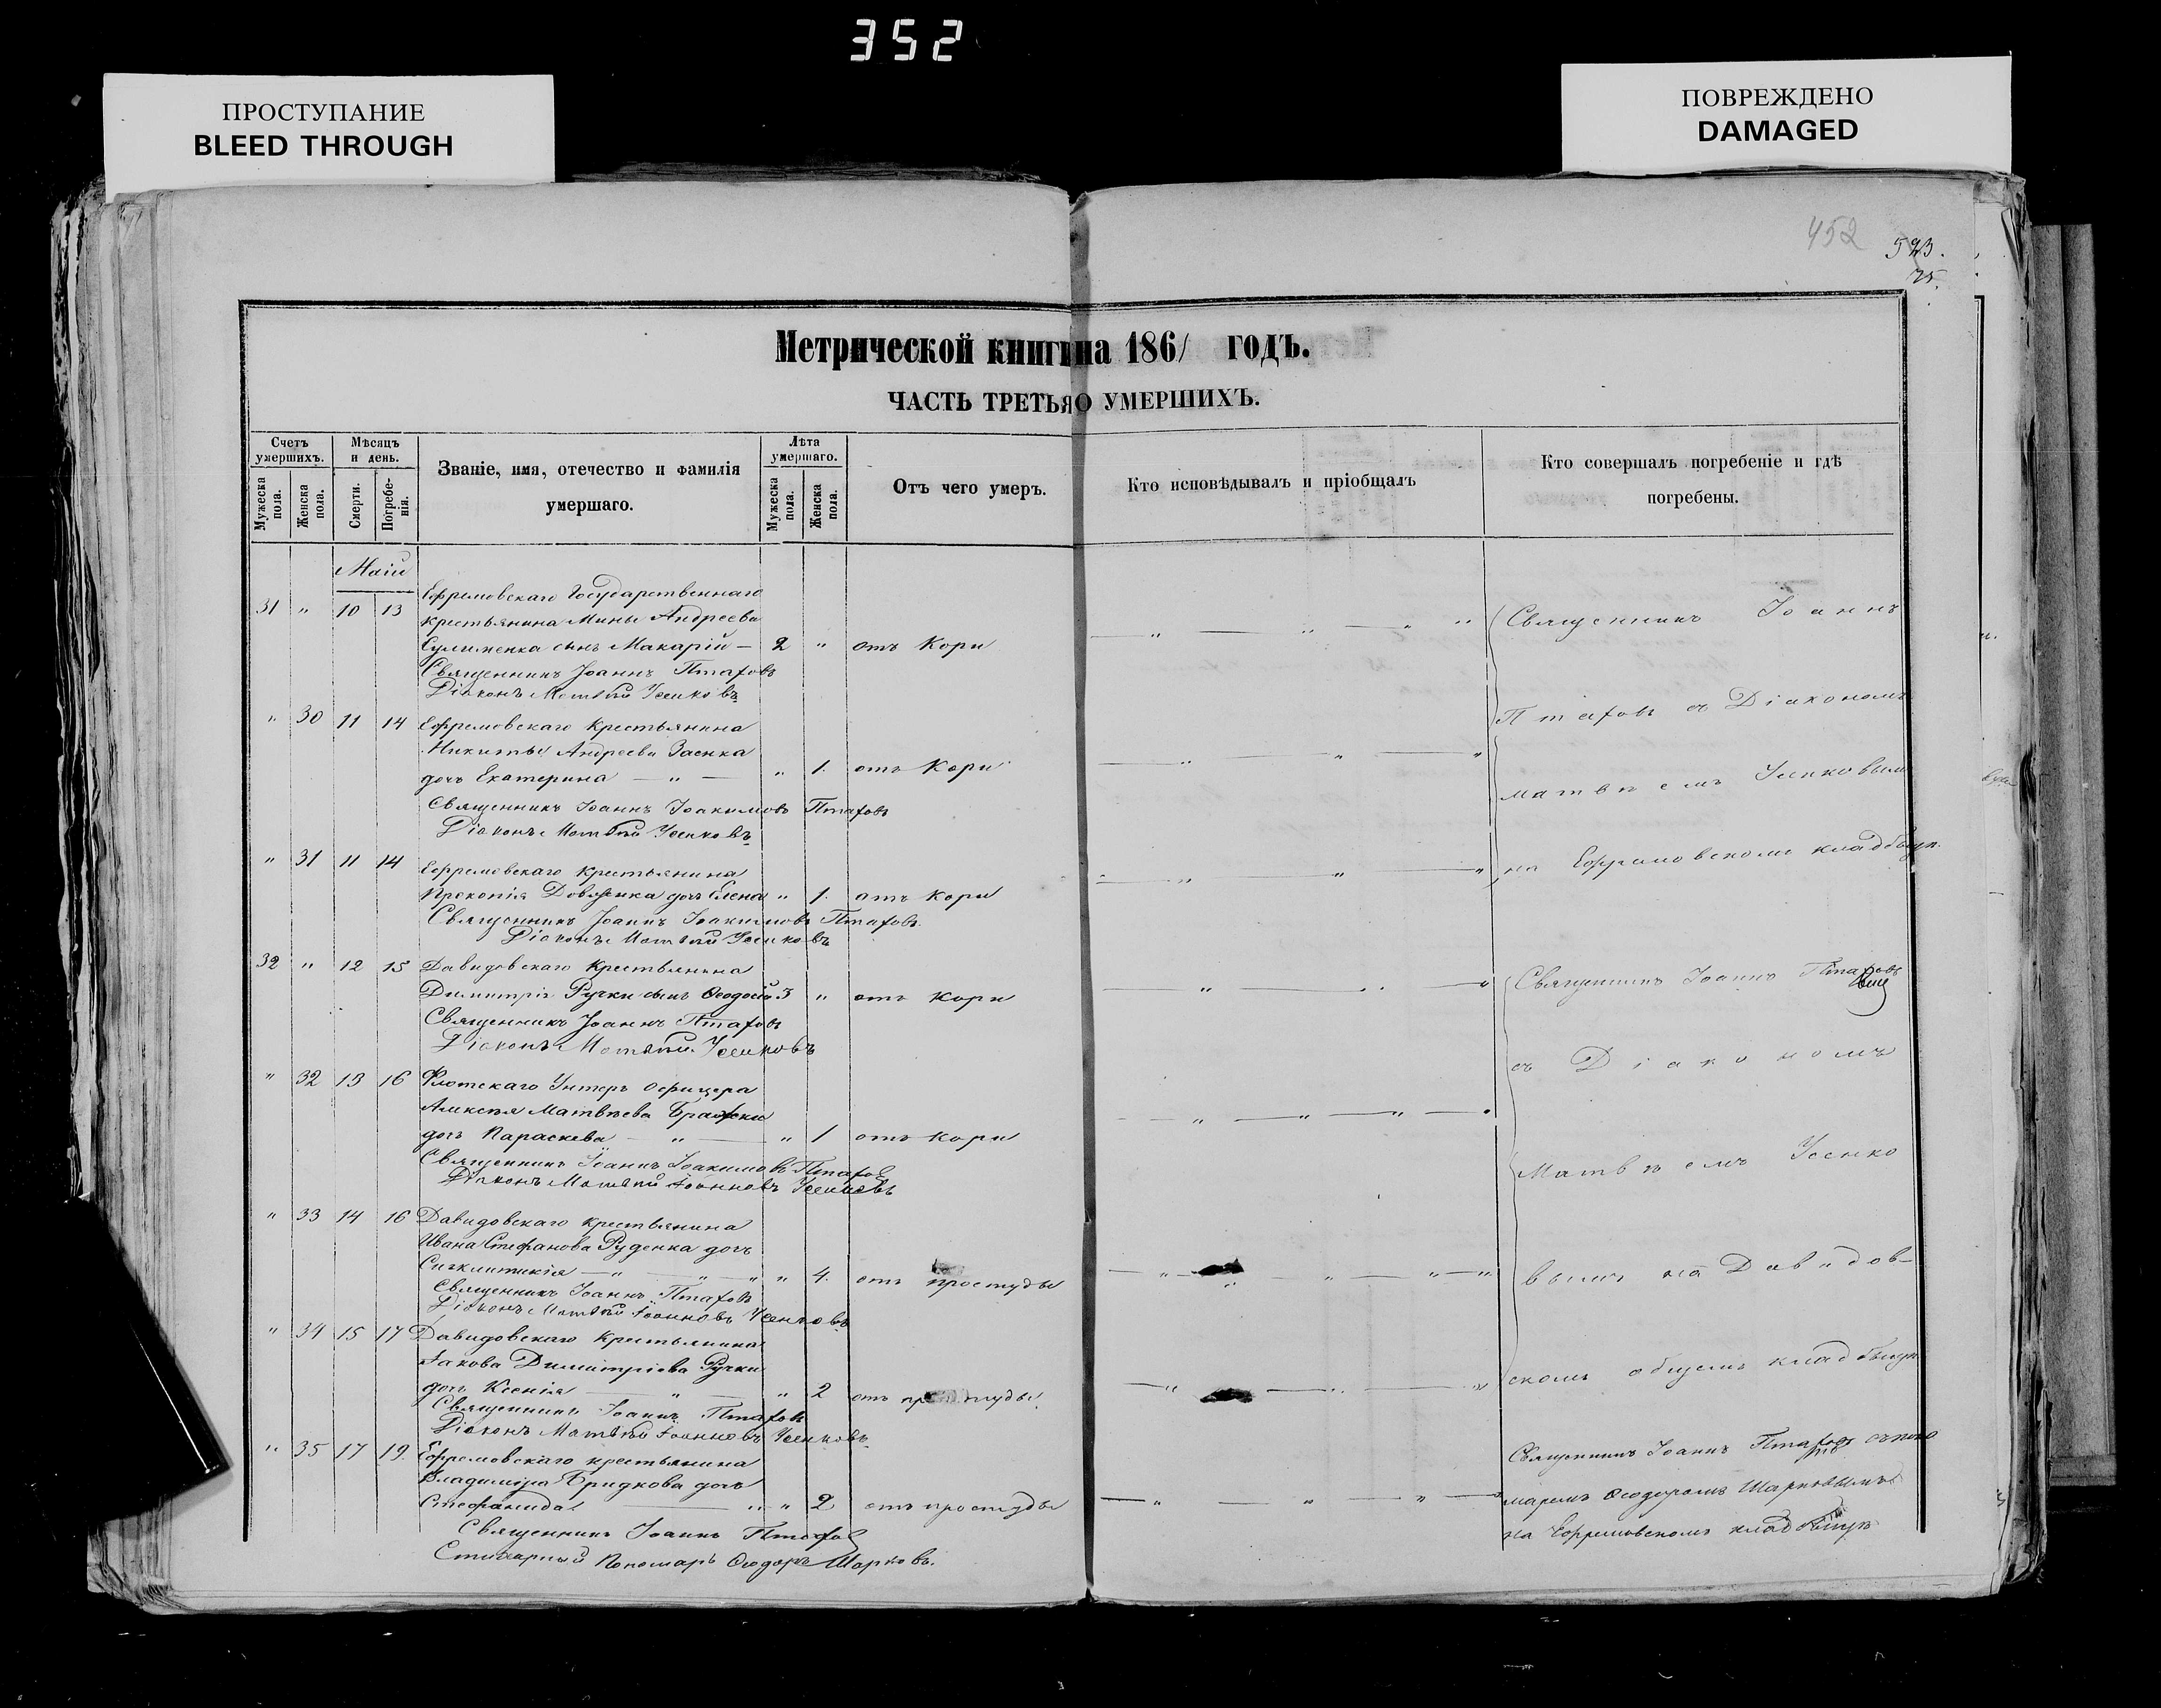 352
ПРОСТУПАНИЕ
BLEED THROUGH
ПОВРЕЖДЕНО
DAMAGED
452
593.
75.
Метрической книги на 1861 годъ.
ЧАСТЬ ТРЕТЬЯ О УМЕРШИХЪ.
Счетъ умершихъ.
Мужеска пола.
Женска пола.
Мѣсяцъ и день.
Смерти.
Погребенія.
Званіе, имя, отечество и фамилія умершаго.
Лѣта умершаго.
Мужеска пола.
Женска пола.
Отъ чего умеръ.
Кто исповѣдывалъ и пріобщалъ
Кто совершалъ погребеніе и гдѣ погребены.
Маій
31 " 10 13 Ефремовскаго Государственнаго
крестьянина Мины Андреева
сынъ Макарій — 2 " отъ Кори
Священникъ Іоаннъ Птаховъ
Діаконъ Матвѣй Усенковъ
" 30 11 14 Ефремовскаго Крестьянина
Никиты Андреева Заенка
дочь Екатерина — " — " 1. отъ Кори
Священникъ Іоаннъ Іоакимовъ Птаховъ
Діаконъ Матвѣй Усенковъ
" 31 11 14 Ефремовскаго Крестьянина
Прокопія Довженка дочь Елена " 1. отъ Кори
Священникъ Іоаннъ Іоакимовъ Птаховъ.
Діаконъ Матвѣй Усенковъ
Священникъ Іоаннъ
Птаховъ съ Діакономъ
Матвѣемъ Усенковымъ
на Ефремовскомъ кладбищѣ.
32 " 12 15 Давидовскаго Крестьянина
Димитрія Ручки сынъ Ѳеодосій 3 " отъ Кори
Священникъ Іоаннъ Птаховъ
Діаконъ Матвѣй Усенковъ
" 32 13 16 Флотскаго Унтеръ Офицера
Алексѣя Матвѣева
дочь Параскева — " — " 1 отъ Кори
Священникъ Іоаннъ Іоакимовъ Птаховъ
Діаконъ Матвѣй Іоанновъ Усенковъ
" 33 14 16 Давидовскаго крестьянина
Ивана Стефанова Руденка дочь
Сигклитикія — " — " — " " 4. отъ простуды
Священникъ Іоаннъ Птаховъ
Діаконъ Матвѣй Іоанновъ Усенковъ
" 34 15 17 Давидовскаго Крестьянина
Іакова Димитріева Ручки
дочь Ксенія — " — " 2 отъ простуды.
Священникъ Іоаннъ Птаховъ
Діаконъ Матвѣй Іоанновъ Усенковъ
Священникъ Іоаннъ Птаховъ
съ Діакономъ
Матвѣемъ Усенко
вымъ на Давидов-
скомъ общемъ кладбищѣ
" 35 17 19. Ефремовскаго крестьянина
Владиміра Бридкова дочь
Стефанида — " " 2 отъ простуды
Священникъ Іоаннъ Птаховъ
Стихарный Пономарь Ѳеодоръ Шарковъ.
Священникъ Іоаннъ Птаховъ съ поно
маремъ Ѳеодоромъ Шарковымъ
на Ефремовскомъ кладбищѣ